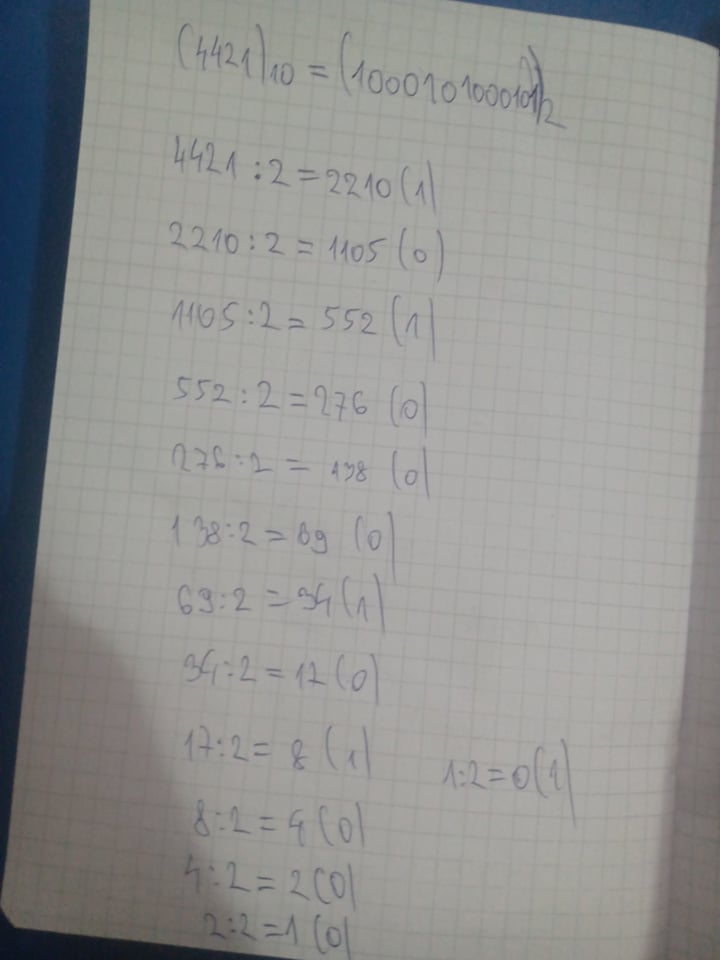 (4421)10 = (1000101000101)2
4421 : 2 = 2210 (1)
2210 : 2 = 1105 (0)
1105 : 2 = 552 (1)
552 : 2 = 276 (0)
276 : 2 = 138 (0)
138 : 2 = 69 (0)
69 : 2 = 34 (1)
34 : 2 = 17 (0)
17 : 2 = 8 (1)
1 : 2 = 0 (1)
8 : 2 = 4 (0)
4 : 2 = 2 (0)
2 : 2 = 1 (0)